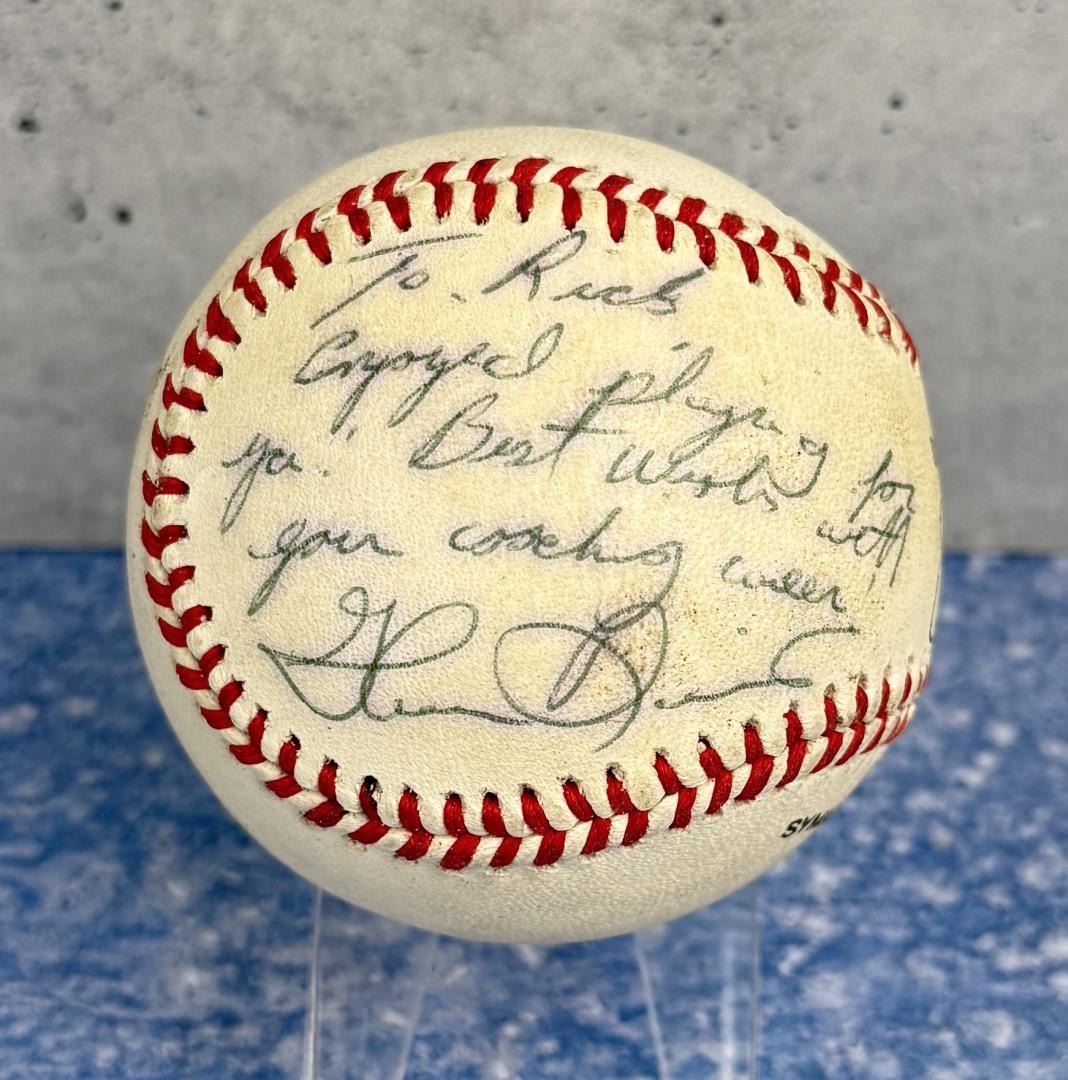 To. Rick
Enjoyed playing for
ya! Best Wishes with
your coaching career!
SYN